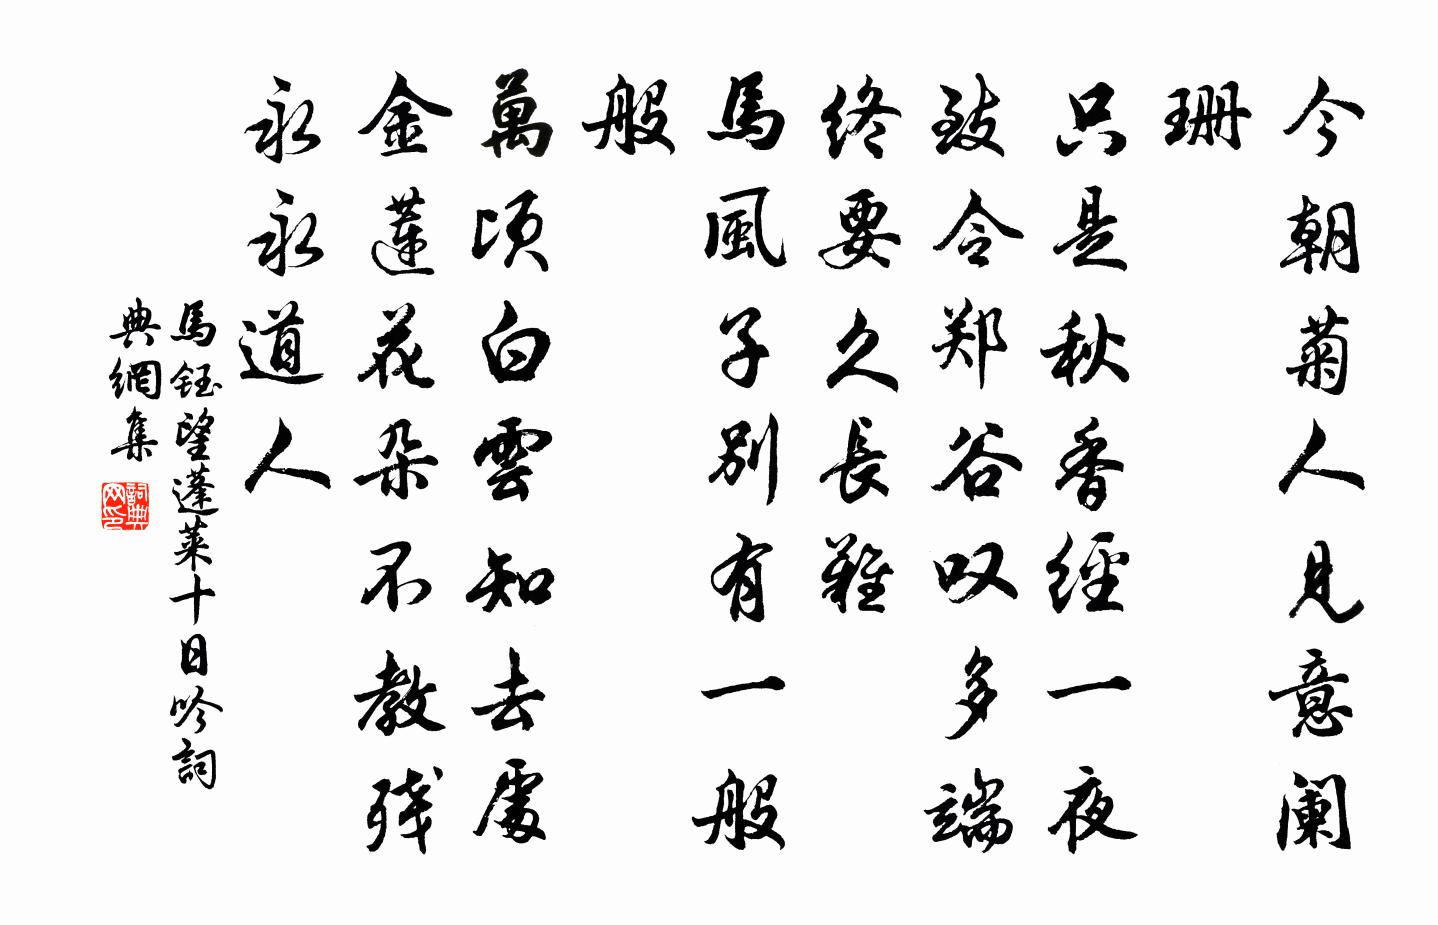 今朝菊人見意阑
珊
只是秋香經一夜
致令郑谷叹多端
終要久長難
馬風子別有一般
般
萬頃白雲知去處
金蓮花朵不教残
永永道人
馬鈺望蓬萊十日吟詞
典網集
詞典网印